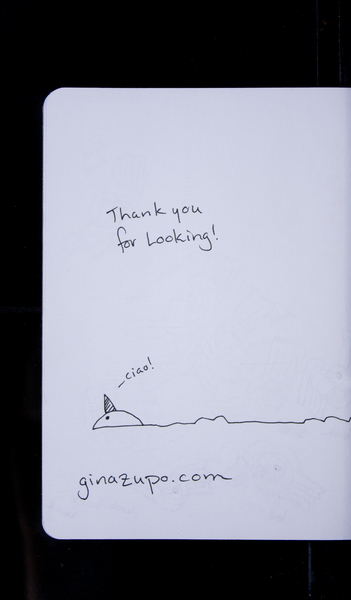 Thank you
for Looking!
ciao!
ginazupo.com